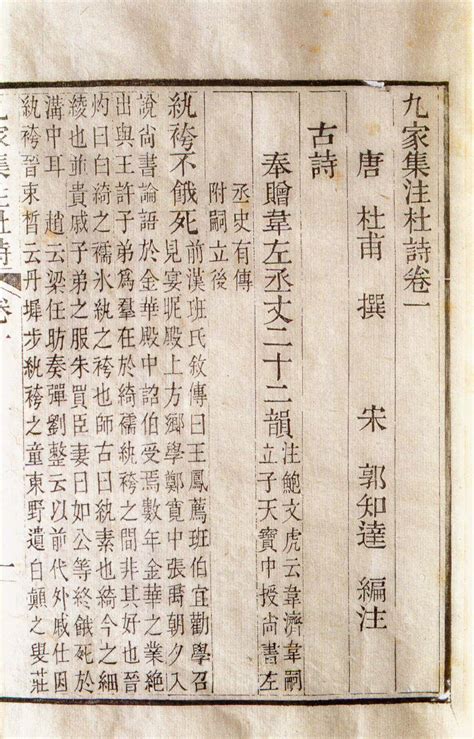 九家集注杜詩卷一
唐 杜甫 撰 宋 郭知達 編注
古詩
奉贈韋左丞丈二十二韻
注鮑文虎云韋濟韋嗣
立子天寶中授尚書左
丞史有傳
附嗣立後
紈袴不餓死
前漢班氏敘傳曰王鳳薦班伯宜勸學召
見宴昵殿上方鄉學鄭寬中張禹朝夕入
說尚書論語於金華殿中詔伯受焉數年金華之業絕
出與王許子弟爲羣在於綺襦紈袴之間非其好也晉
灼曰白綺之襦氷紈之袴也師古曰紈素也綺今之細
綾也並貴戚子弟之服朱買臣妻曰如公等終餓死於
溝中耳 趙云梁任昉奏彈劉整云以前代外戚仕因
紈袴晉束晳云丹墀步紈袴之童東野遺白顛之叟莊
九家集注杜詩 卷一
一